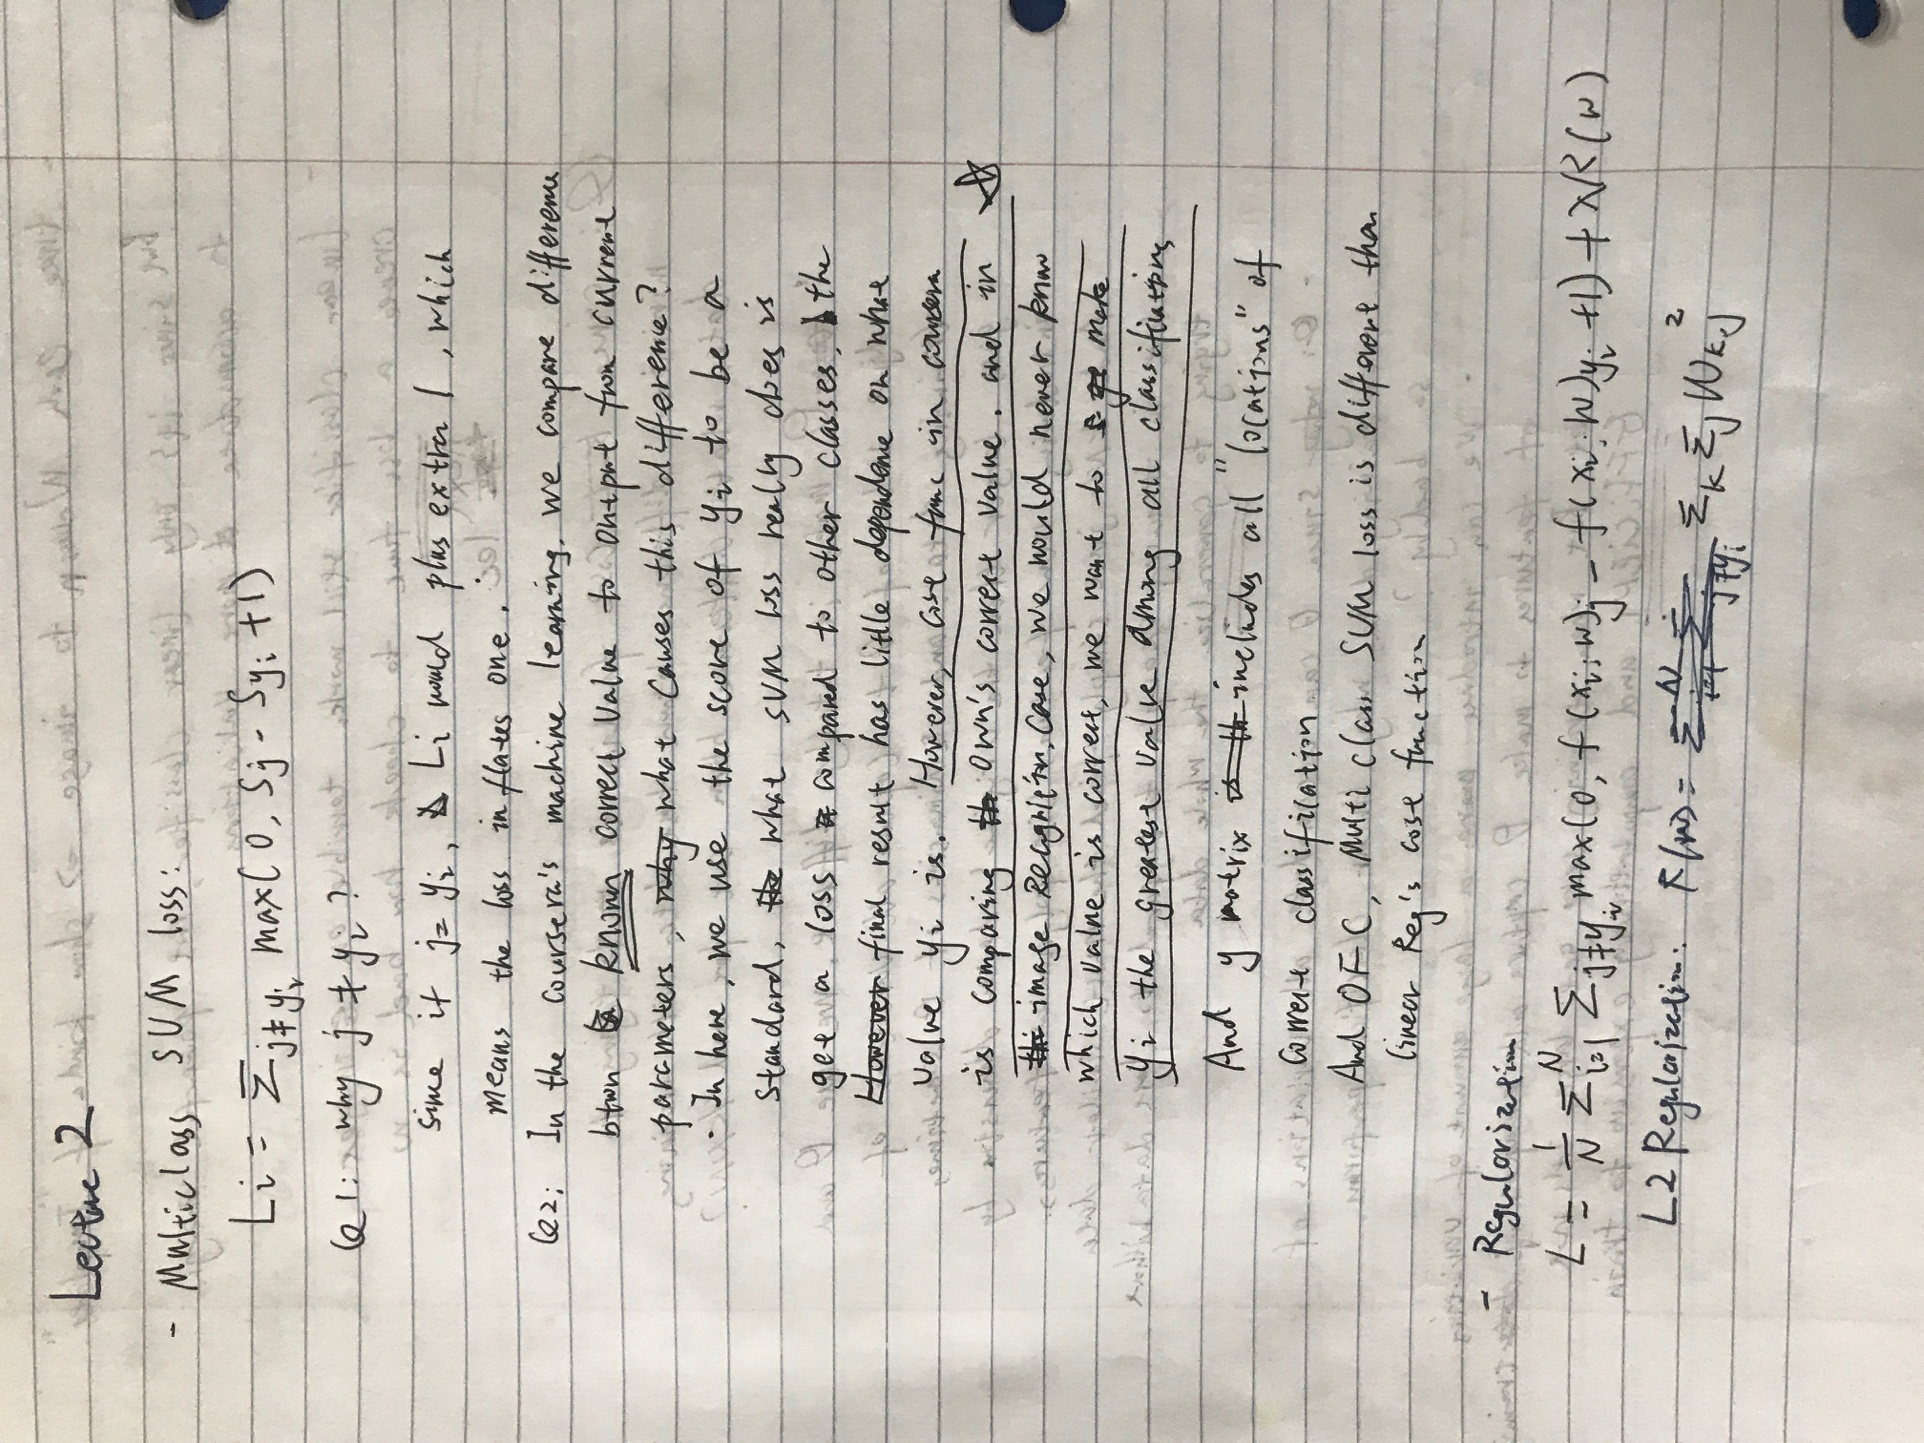 Lecture 2
- Multiclass SVM loss:
Li = Σj≠yi max(0, Sj - Syi +1)
Q1: why j ≠ yi ?
sine if j= yi, Li would plus extra 1, which
means the loss inflates one.
Q2: In the coursera's machine learning, we compare difference
btwn known correct value to output from current
parameters, why what causes this difference?
. In here, we use the score of yi to be a
standard, the what SVM loss really does is
get a loss compared to other classes, the
However final result has little dependene on what
value yi is. However, cost func in coursera
is comparing the own's correct value. and in
the image recognition case, we would never know
which value is correct, we want to make
yi the greatest value among all classifications
And y matrix is th includes all "locations" of
correct classification
And OFC, Multi class SVM loss is different than
linear Reg's cost function
- Regularization
L = 1/N Σ^N i=1 Σj≠yi max(0, f(xi;W)j - f(xi;W)yi +1) + λR(W)
L2 Regularization: R(W) = Σk Σj Wk,j²